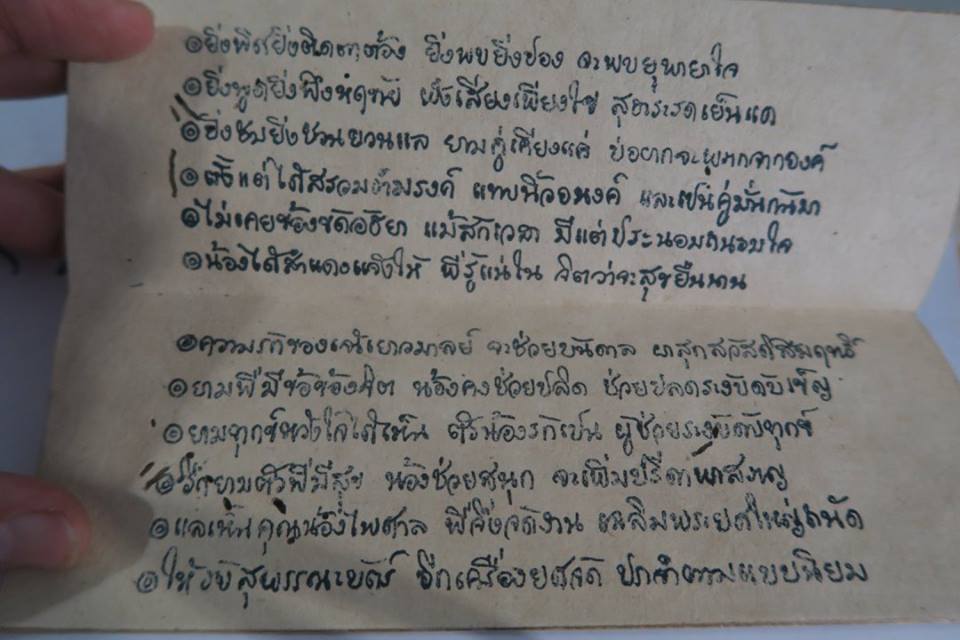 ๏ยิ่งพิศยิ่งติดตาต้อง ยิ่งพบยิ่งปอง จะพบยุพายาใจ
๏ยิ่งพูดยิ่งพึงหฤทัย ฟังเสียงเพียงใช่ สุธาระรดเย็นแด
๏ยิ่งชมยิ่งชวนยวนแล ยามคู่เคียงแด บ่อยากจะผูกจากองค์
๏ตั้งแต่ได้สรวมธำมรงค์ แทบนิ้วอนงค์ และเป็นคู่มั่นกันมา
๏ไม่เคยข้องขัดอัธยา แม้สักเวลา มีแต่ประนอมถนอมใจ
๏น้องได้สำแดงแจ้งให้ พี่รู้แน่ใน จิตว่าจะสุขยืนนาน
๏ความรักของเจ้าเยาวมาลย์ จะช่วยบันดาล ผาสุกสวัสดิ์สมฤทธิ์
๏ยามพี่มีข้อข้องจิต น้องคงช่วยปลิด ช่วยปลดระงับดับเข็ญ
๏ยามทุกข์หวังใจได้เห็น ตัวน้องรักเป็น ผู้ช่วยระงับดับทุกข์
๏อีกยามตัวพี่มีสุข น้องช่วยสนุก จะเพิ่มปรีดาผาสจญ
๏แลเห็นคุณน้องไพศาล พี่จึ่งจัดงาน เฉลิมพระยศใหญ่ถนัด
๏ให้รับสุพรรณะบัฏ อีกเครื่องยศจัด ปกติตามแบบนิยม